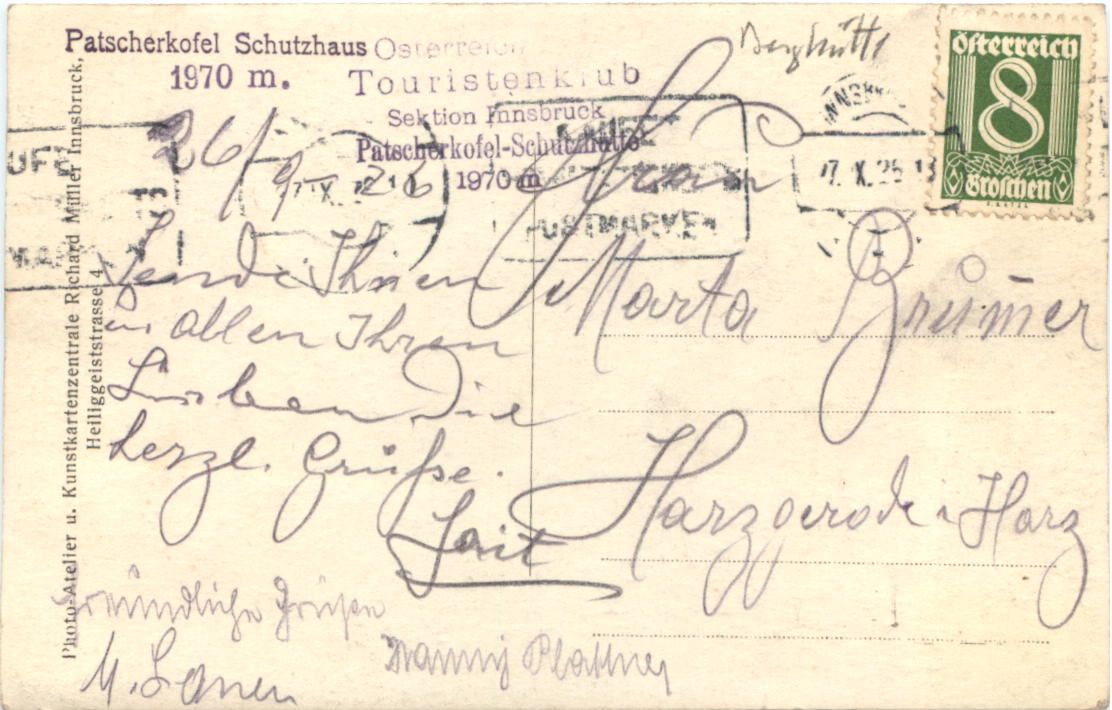 Patscherkofel Schutzhaus
1970 m.
Österreich
Touristenklub
Sektion Innsbruck
Patscherkofel-Schutzhütte
1970 m
Berghütte
österreich
8
Groschen
7. IX. 25
POSTMARKEN
26/9
Sende Ihnen
u. allen Ihren
Lieben die
herzl. Grüße.
freundliche Grüße
Plattner
Frau
Marta
Harzgerode i Harz
Photo-Atelier u. Kunstkartenzentrale Richard Müller Innsbruck,
Heiliggeiststrasse 4.